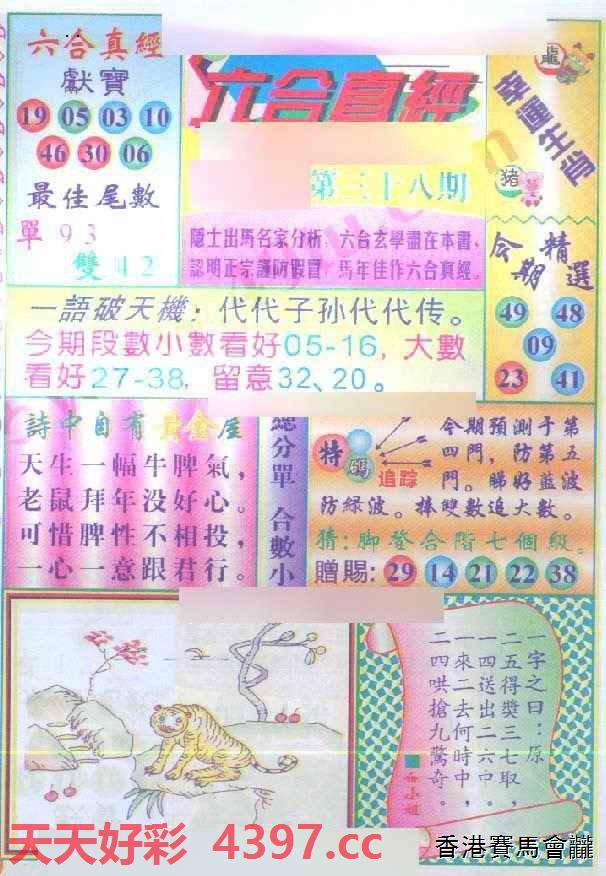 六合真經
獻寶
19 05 03 10
46 30 06
最佳尾數
單93
雙42
六合真經
第三十八期
隱士出馬名家分析，六合玄學盡在本書、
認明正宗謹防假冒，馬年佳作六合真經。
龍
幸運生肖
豬
今期精選
49 48
09
23 41
一語破天機：代代子孙代代传。
今期段數小數看好05-16，大數
看好27-38，留意32、20。
詩中自有黃金屋
天生一幅牛脾氣，
老鼠拜年没好心。
可惜脾性不相投，
一心一意跟君行。
總分單 合數小
特碼
追踪
今期預測于第
四門，防第五
門。睇好藍波
防緑波。捧雙數追大數。
猜：脚登合階七個級。
贈賜：29 14 21 22 38
一字之曰：原
二五得獎三七取，
一四送出二六口。
一來二去何時中，
二四哄搶九驚奇。
天天好彩 4397.cc
香港賽馬會